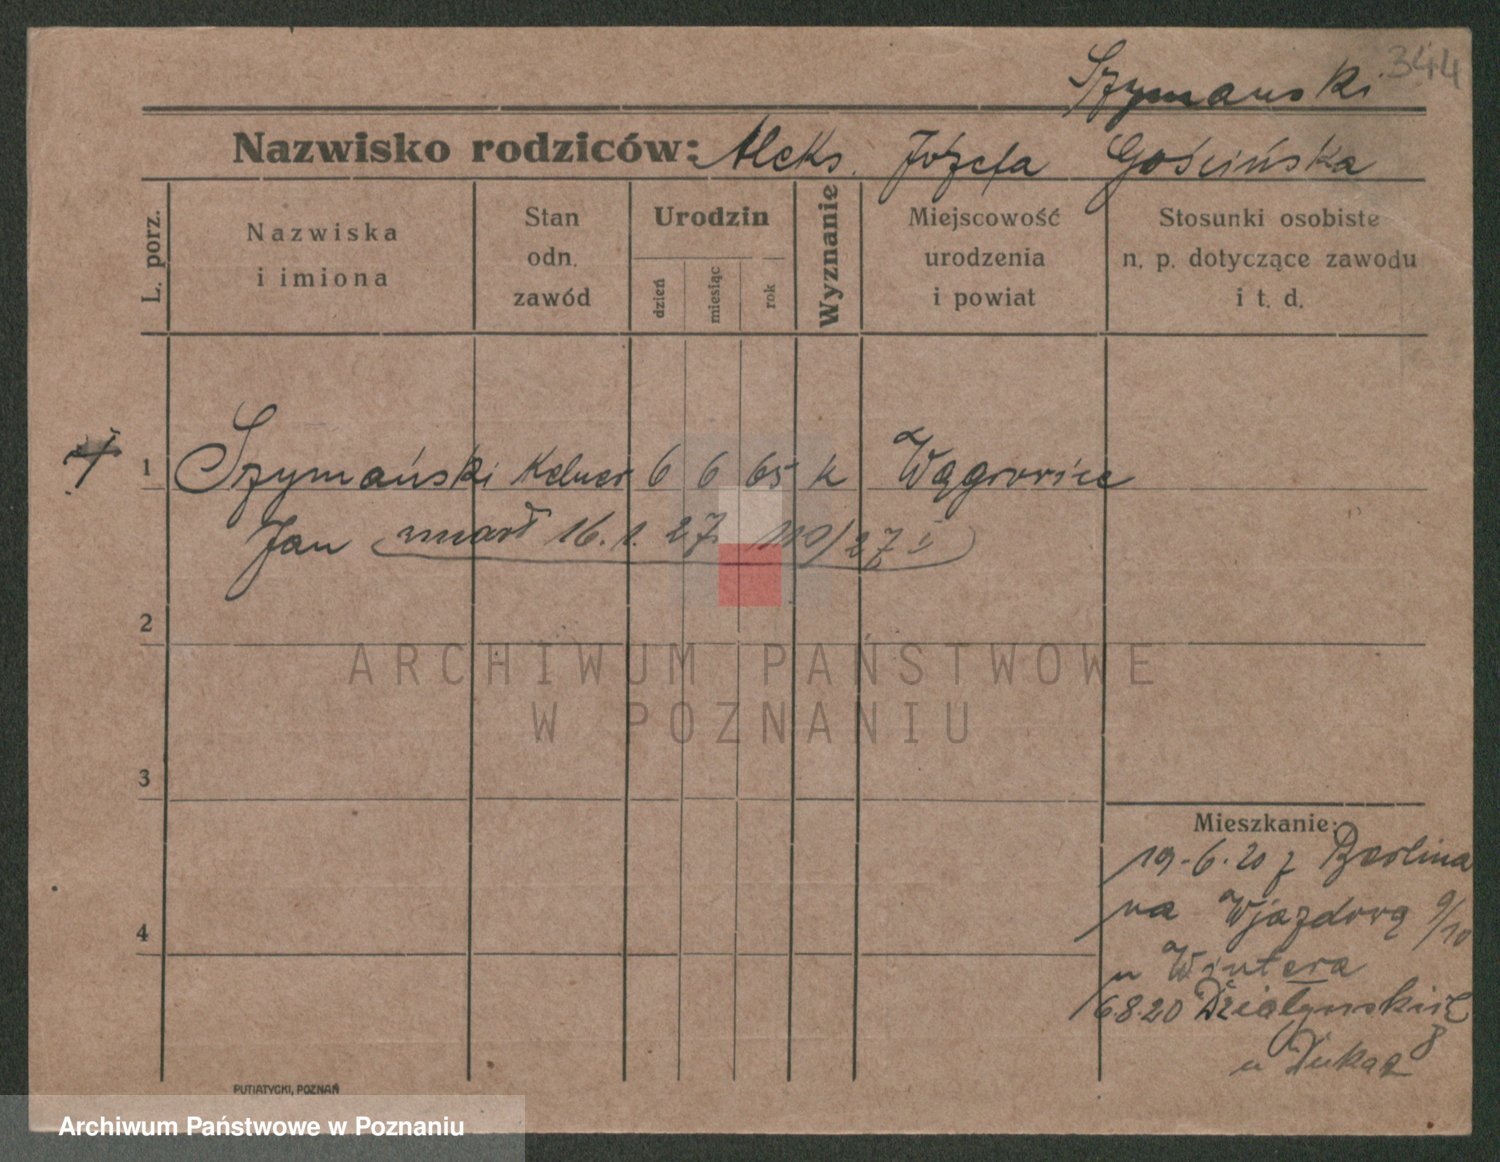 344
Szymanski
Nazwisko rodziców: Aleks. Józefa Gościńska
L. porz.
Nazwiska
i imiona
Stan
odn.
zawód
Urodzin
dzień
miesiąc
rok
Wyznanie
Miejscowość
urodzenia
i powiat
Stosunki osobiste
n. p. dotyczące zawodu
i t. d.
1 Szymański Kelner 6 6 65 k Wągrowiec
Jan zmarł 16.1.27. 110/27
2
ARCHIWUM PAŃSTWOWE
W POZNANIU
3
Mieszkanie:
19-6.20 z Berlina
na Wjazdową 9/10
u Wintera
6.8.20 Działyńskich
8
u
4
PUTIATYCKI, POZNAŃ
Archiwum Państwowe w Poznaniu